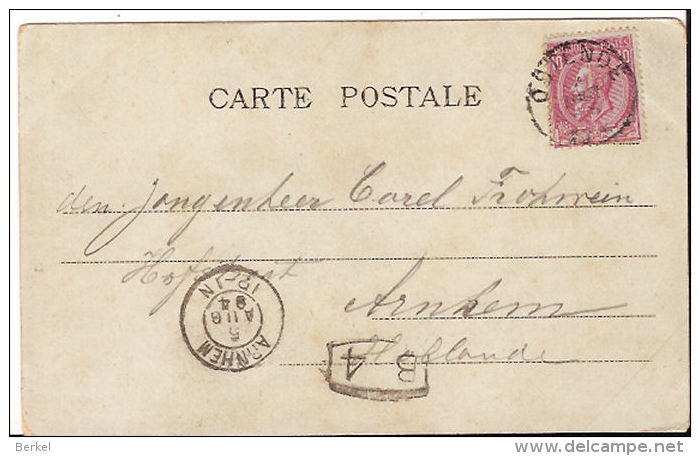 OSTENDE
CARTE POSTALE
den Jongenheer Carel Frohwein
Hofstraat
Arnhem
Hollande
ARNHEM
5
AUG
94
12-1N
B
4
Berkel
www.delcampe.net